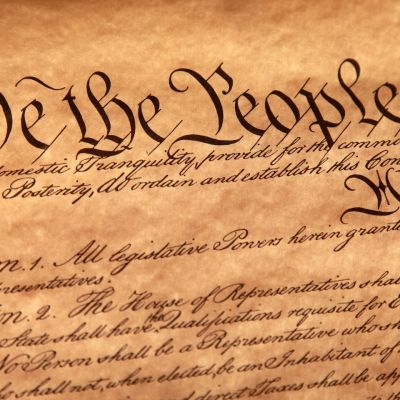 We the People
omestic Tranquility, provide for the commo
Posterity, do ordain and establish this Con
n. 1. All legislative Powers herein grante
presentatives.
n. 2. The House of Representatives shal
State shall have the Qualifications requisite for E
No Person shall be a Representative who sh
ho shall not, when elected, be an Inhabitant of
and direct Taxes shall be ap